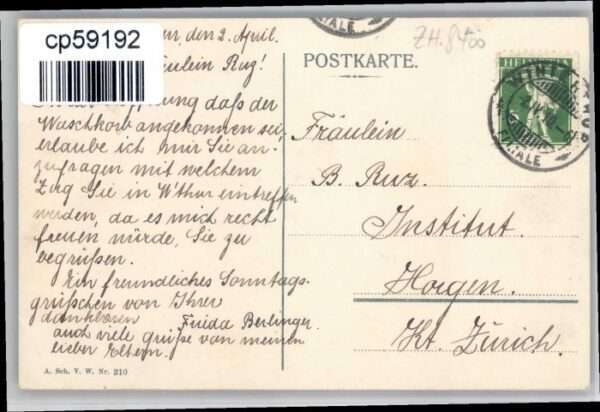 cp59192
den 2. April.
Z.H. 8400
Ruz!
daß der
Waschkorb angekommen sei,
erlaube ich mir Sie an-
zufragen mit welchem
Zug Sie in W'thur eintreffen
werden, da es mich recht
freuen würde, Sie zu
begrüßen.
Ein freundliches Sonntags-
grüßchen von Ihrer
dankbaren Frieda Berlinger.
auch viele Grüße von meinen
lieben Eltern.
A. Sch. V. W. Nr. 210
POSTKARTE.
HELVETIA
WINTERTHUR
FILIALE
FILIALE
Fräulein
B. Ruz.
Institut.
Horgen.
Kt. Zürich.